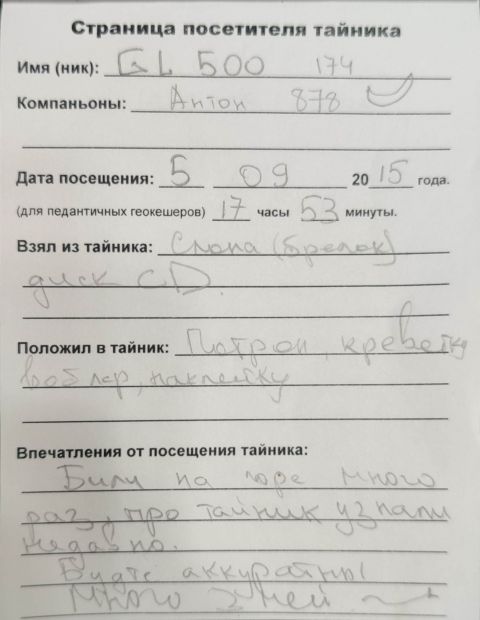 Страница посетителя тайника
Имя (ник): GL 500 174
Компаньоны: Антон 878
Дата посещения: 5 09 2015 года.
(для педантичных геокешеров) 17 часы 53 минуты.
Взял из тайника: Слона (брелок)
диск CD.
Положил в тайник: Патрон, креветку
воблер, наклейку
Впечатления от посещения тайника:
Были на горе много
раз, про тайник узнали
недавно.
Будте аккуратны
много змей